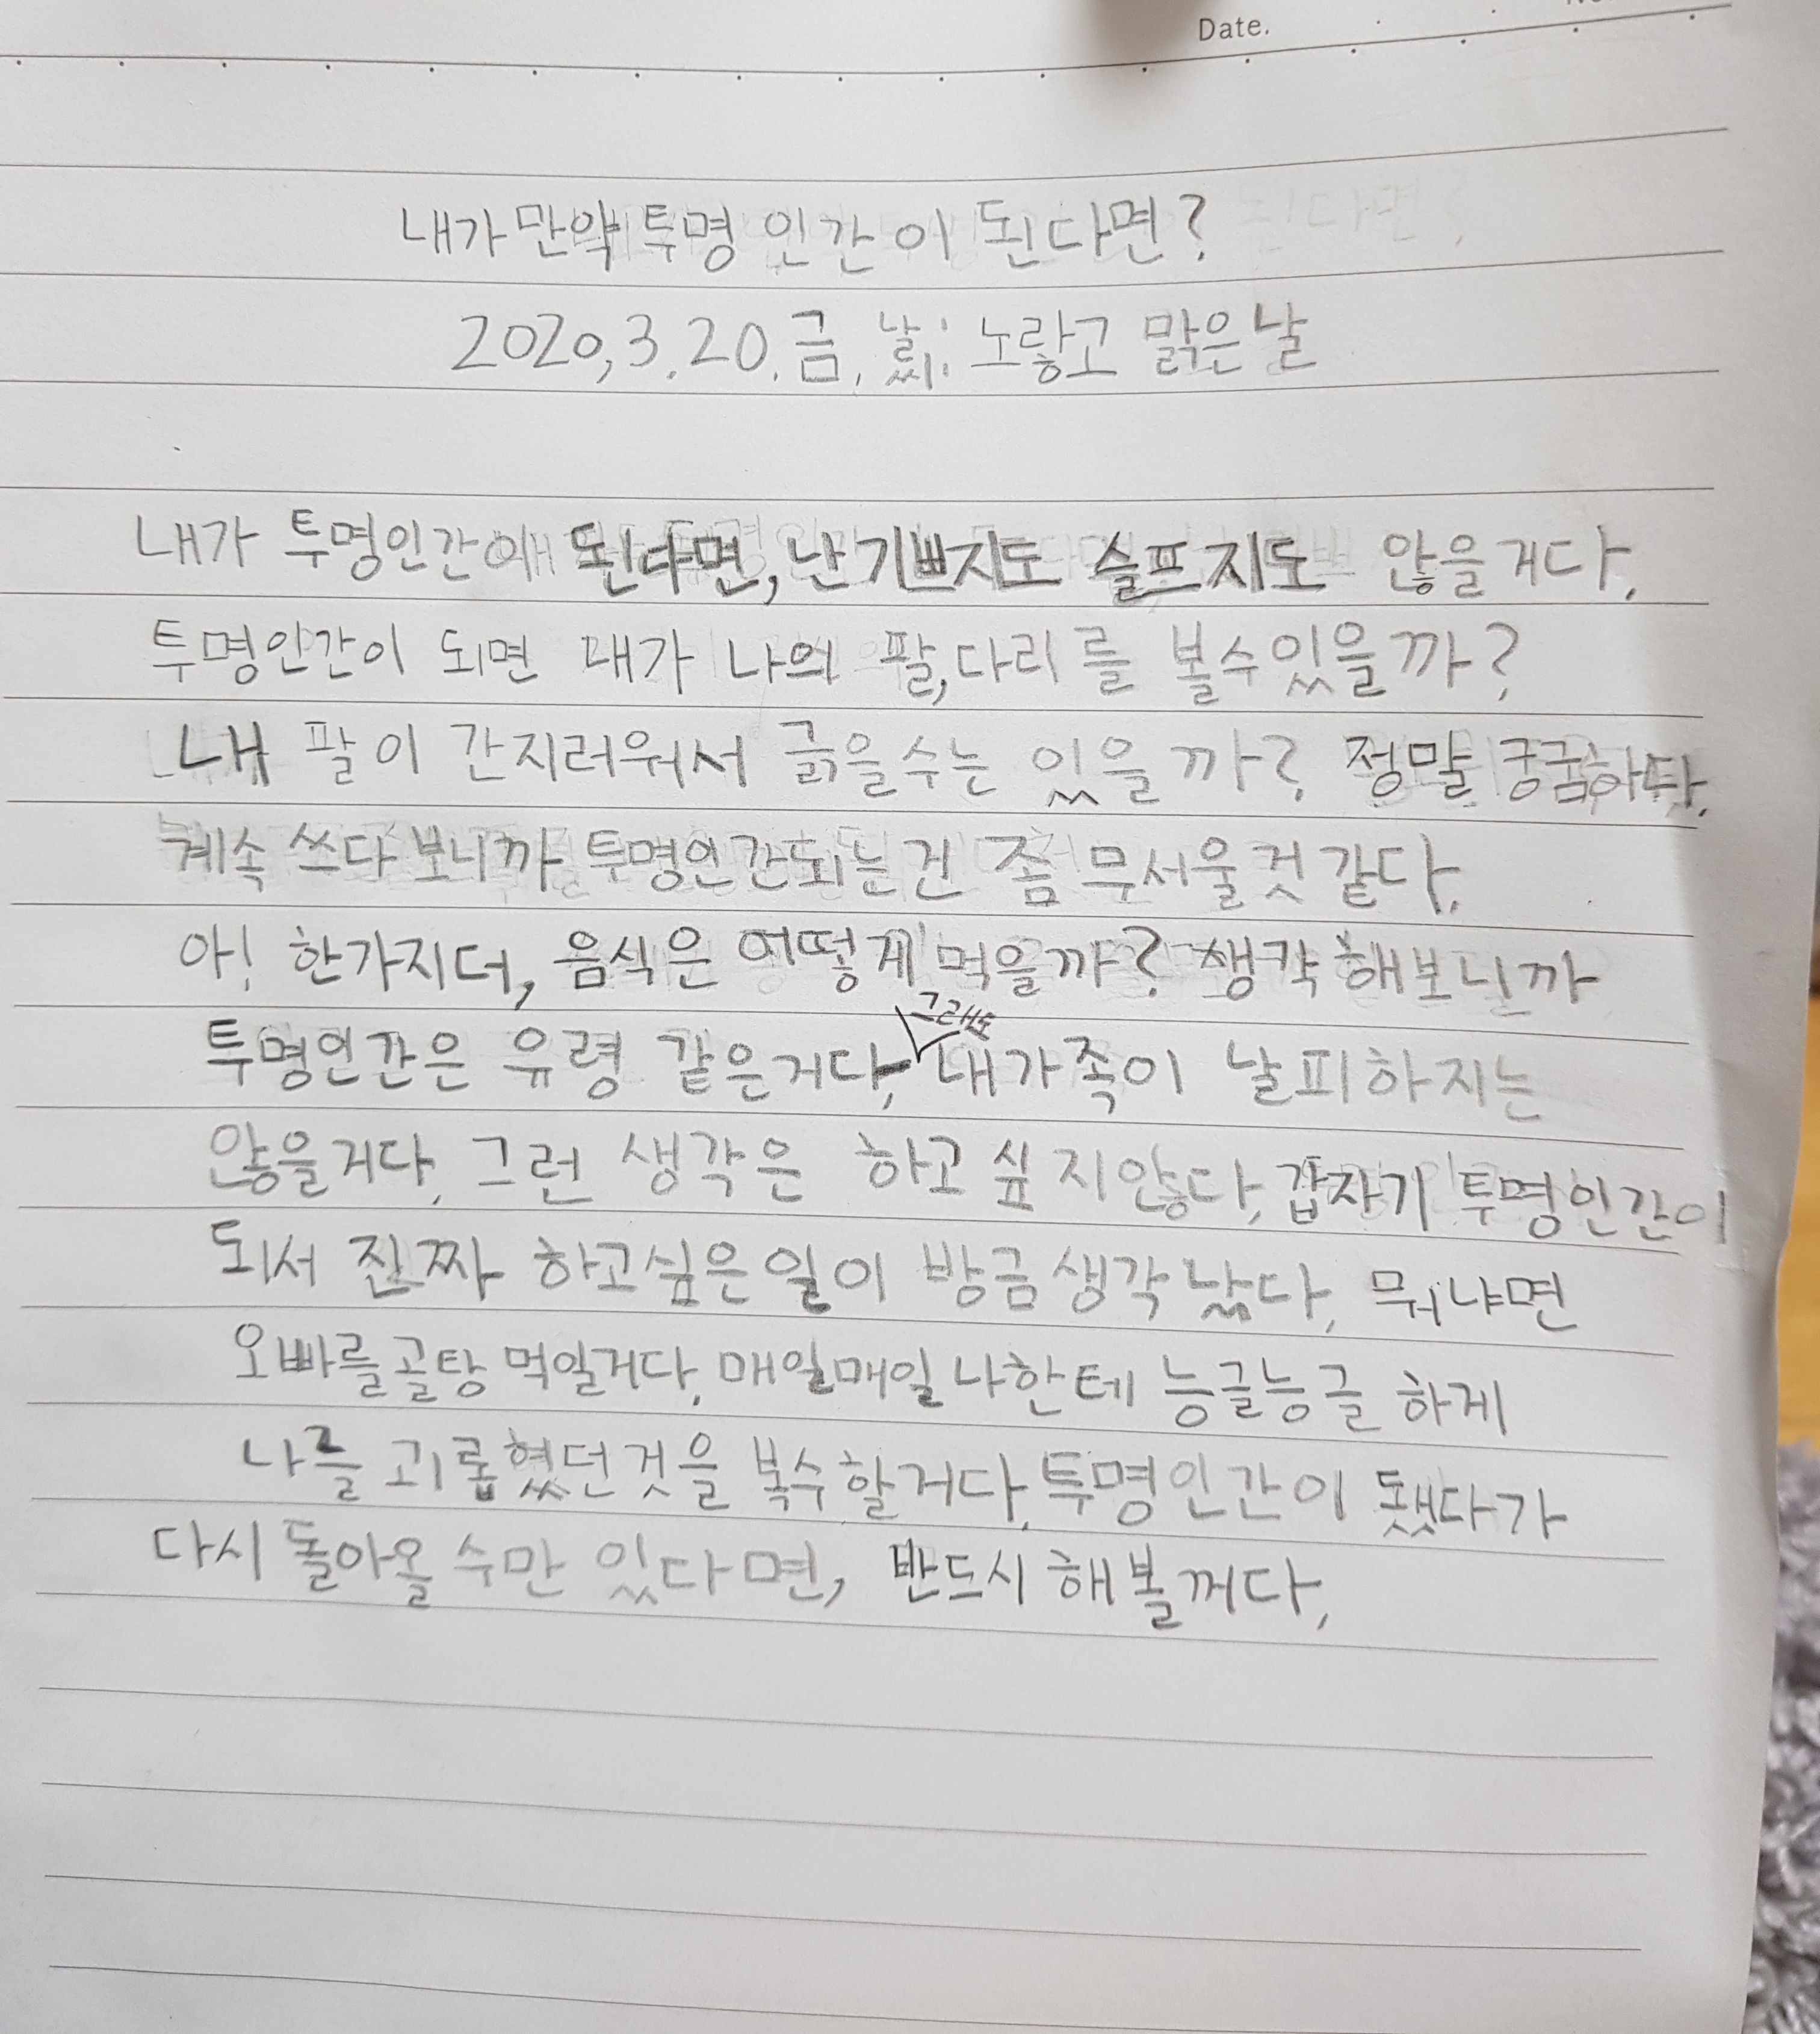 Date.
내가 만약 투명 인간이 된다면?
2020, 3. 20. 금, 날씨: 노랗고 맑은날
내가 투명인간이 된다면, 난 기쁘지도 슬프지도 않을거다.
투명인간이 되면 내가 나의 팔,다리를 볼수있을까?
내 팔이 간지러워서 긁을수는 있을까? 정말 궁굼하다.
계속 쓰다보니까 투명인간되는건 좀 무서울것 같다.
아! 한가지더, 음식은 어떻게 먹을까? 생각해보니까
그래도
투명인간은 유령 같은거다, 내가족이 날피하지는
않을거다. 그런 생각은 하고싶지않다, 갑자기 투명인간이
되서 진짜 하고싶은일이 방금생각났다, 뭐냐면
오빠를골탕먹일거다, 매일매일나한테 능글능글하게
나를 괴롭혔던것을 복수할거다, 투명인간이 됐다가
다시 돌아올 수만 있다면, 반드시해볼꺼다,